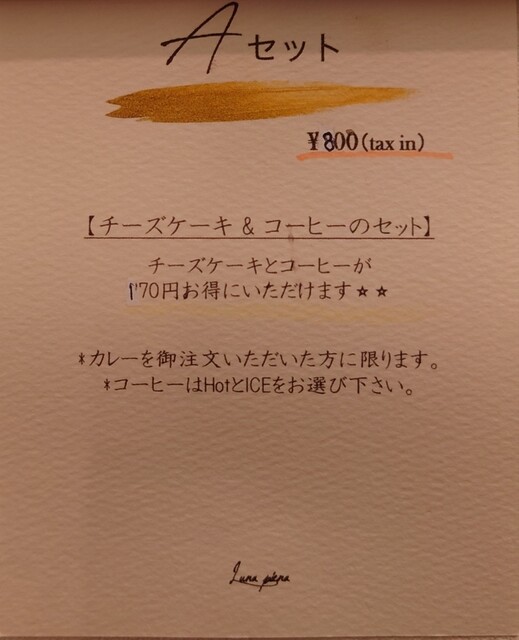 Aセット
¥800(tax in)
【チーズケーキ & コーヒーのセット】
チーズケーキとコーヒーが
170円お得にいただけます☆☆
*カレーを御注文いただいた方に限ります。
*コーヒーはHotとICEをお選び下さい。
Luna piena